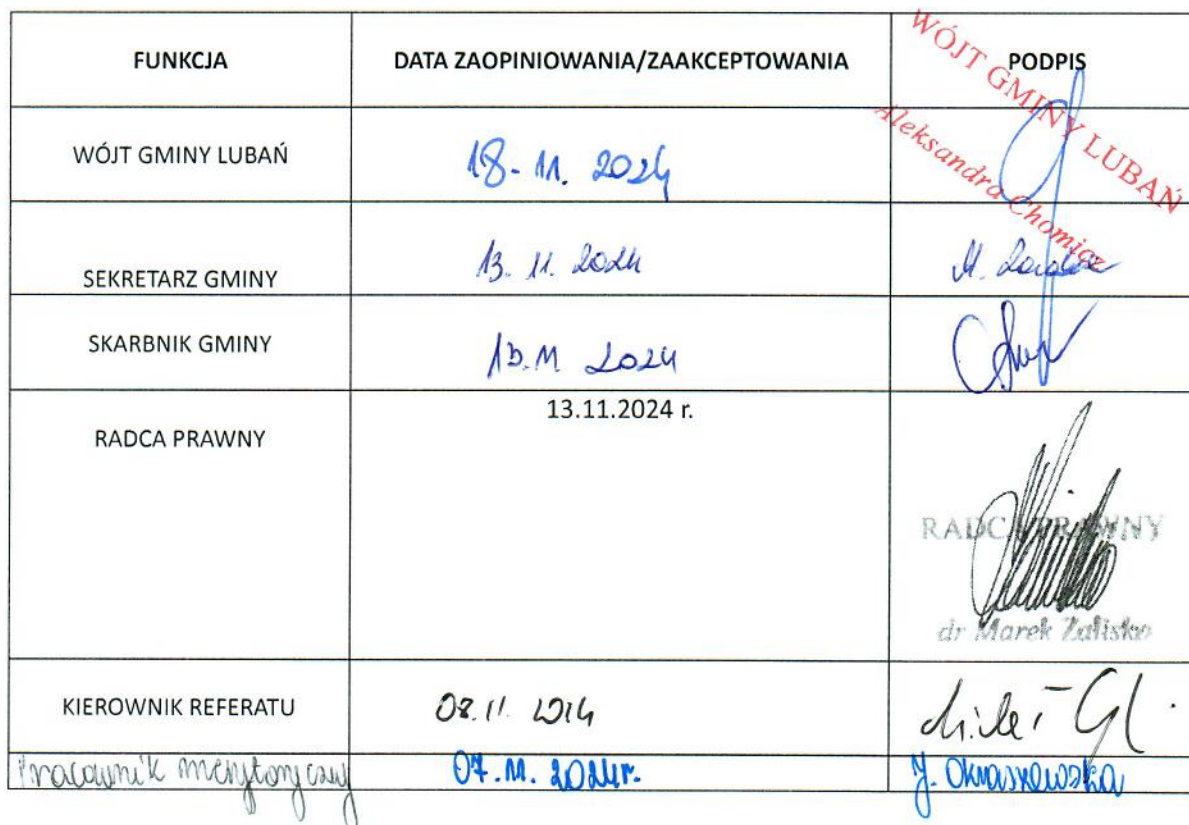 FUNKCJA DATA ZAOPINIOWANIA/ZAAKCEPTOWANIA PODPIS
WÓJT GMINY LUBAŃ
Aleksandra Chomicz
WÓJT GMINY LUBAŃ 18-11. 2024
SEKRETARZ GMINY 13. 11. 2024 M.
SKARBNIK GMINY 13.11 2024
RADCA PRAWNY 13.11.2024 r.
RADCA PRAWNY
dr Marek Zalisko
KIEROWNIK REFERATU 08.11. 2024
Pracownik merytoryczny 07.11.2024r. J. Okraszewska